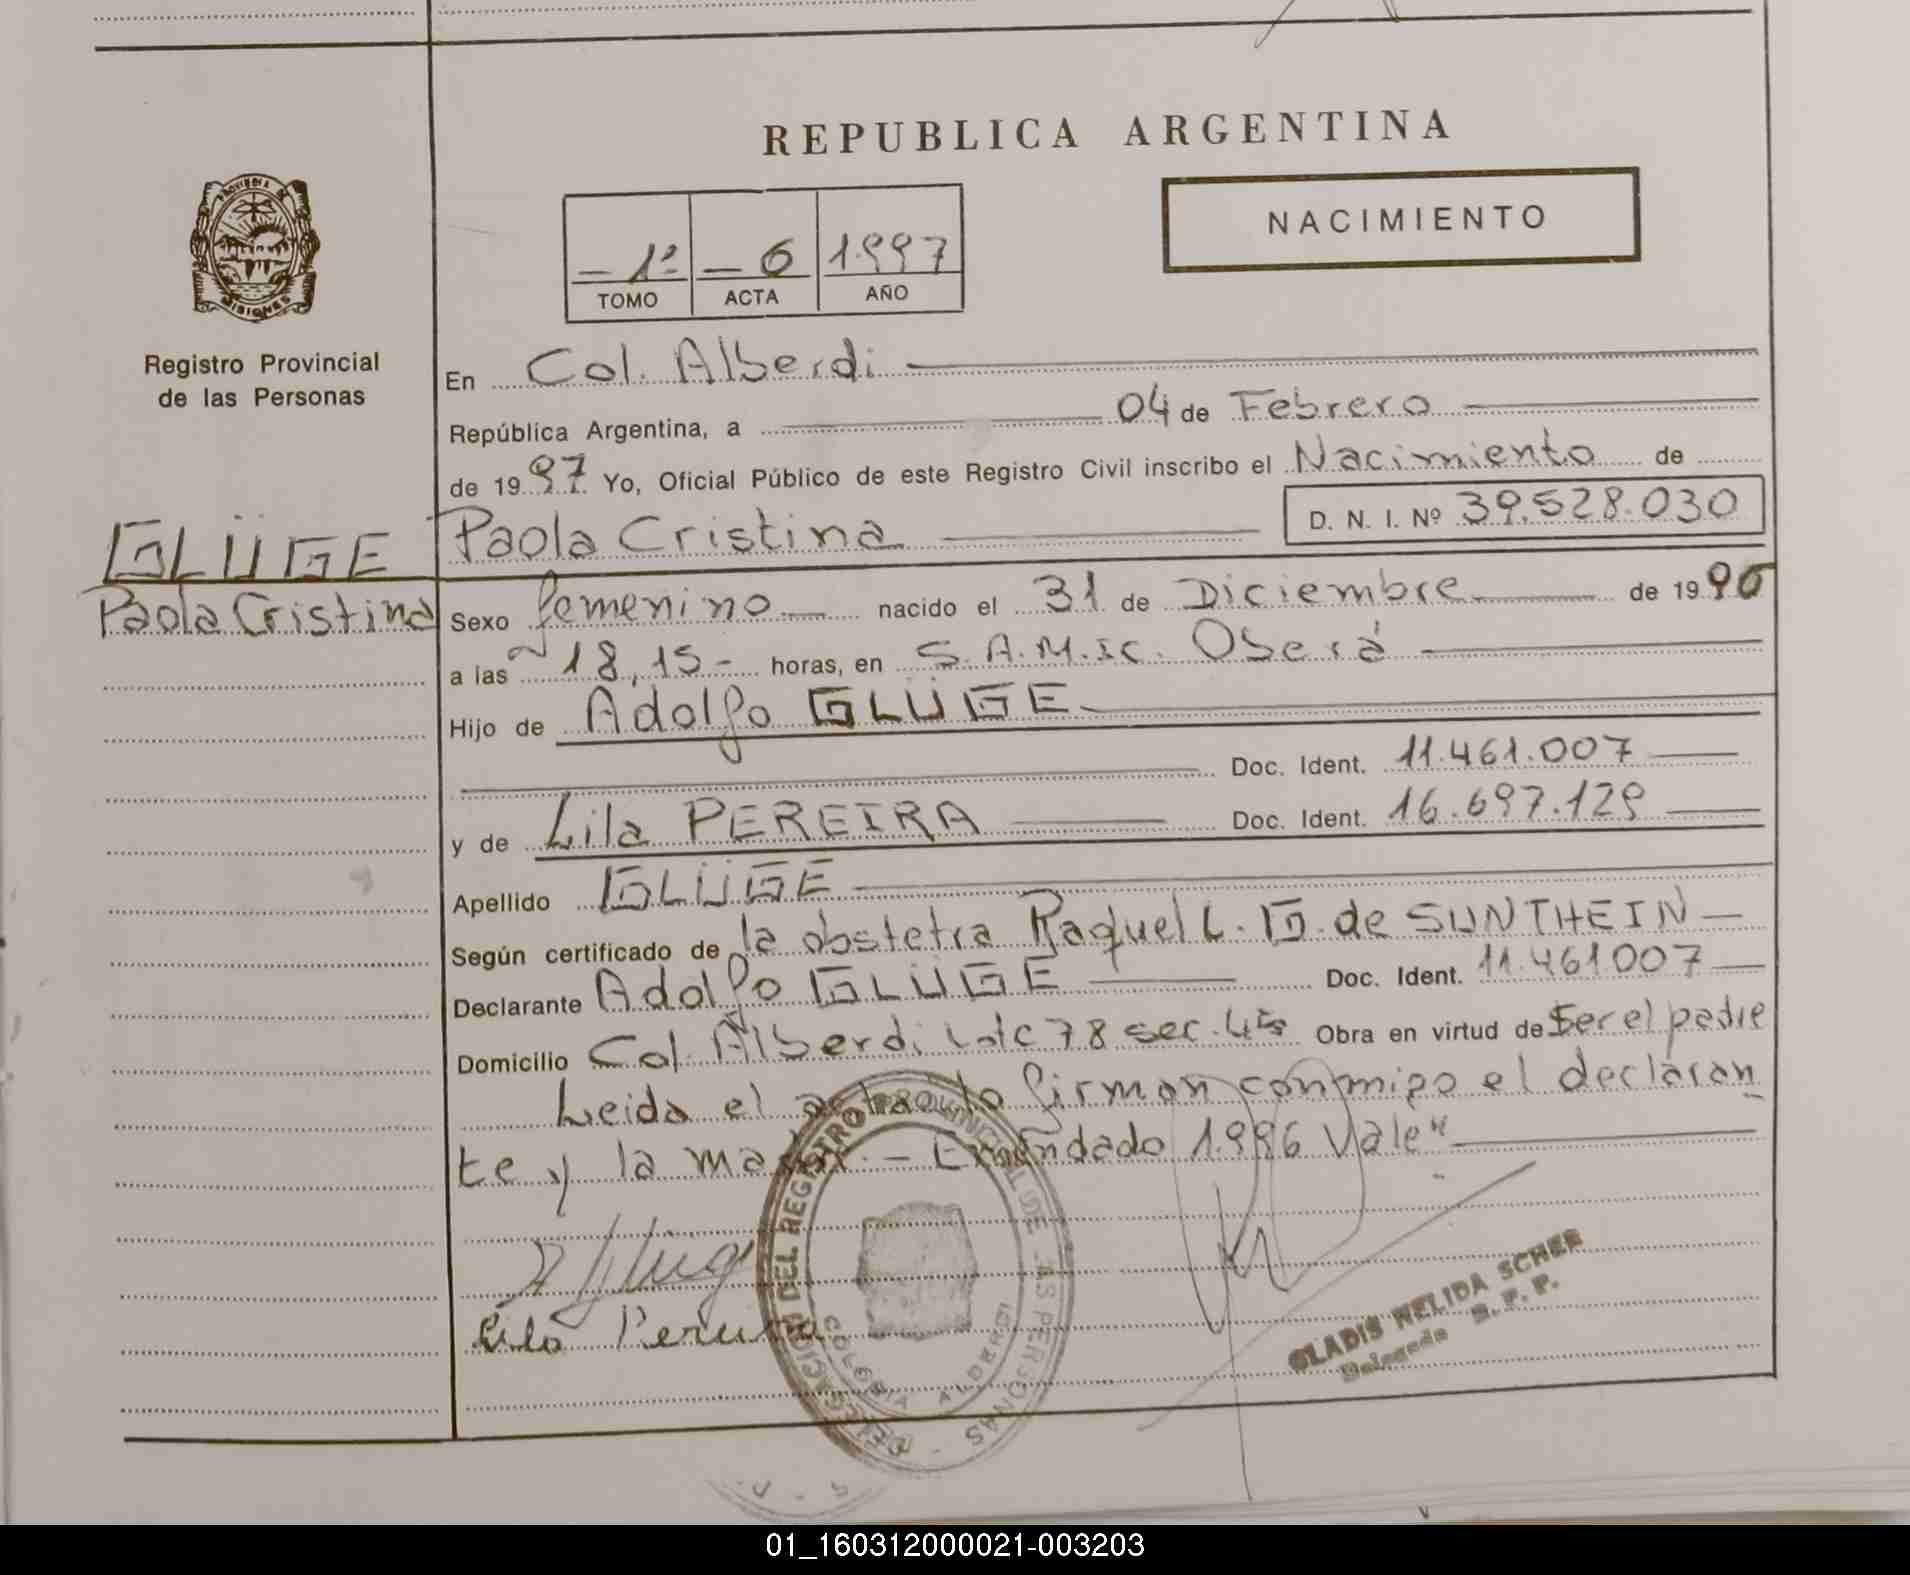 REPUBLICA ARGENTINA
NACIMIENTO
PROVINCIA DE MISIONES
Registro Provincial
de las Personas
— 1º — 6 1.997
TOMO ACTA AÑO
En Col. Alberdi
República Argentina, a 04 de Febrero
de 1997. Yo, Oficial Público de este Registro Civil inscribo el Nacimiento de
GLÜGE Paola Cristina D. N. I. Nº 39.528.030
Paola Cristina
Sexo femenino nacido el 31 de Diciembre de 1996
a las 18,15- horas, en S.A.M.ic. Oberá
Hijo de Adolfo GLÜGE
Doc. Ident. 11.461.007
y de Lila PEREIRA Doc. Ident. 16.697.129
Apellido GLÜGE
Según certificado de la obstetra Raquel L. G. de SUNTHEIN
Declarante Adolfo GLÜGE Doc. Ident. 11.461007
Domicilio Col. Alberdi Lote 78 sec. Obra en virtud de Ser el padre
Leida el acta la firman conmigo el declaran
te y la madre.— Enmendado 1.996 Vale"
Lila Pereira
DELEGACION DEL REGISTRO PROVINCIAL DE LAS PERSONAS -
COLONIA ALBERDI
GLADIS NELIDA SCHER
Delegada R. P. P.
01_160312000021-003203